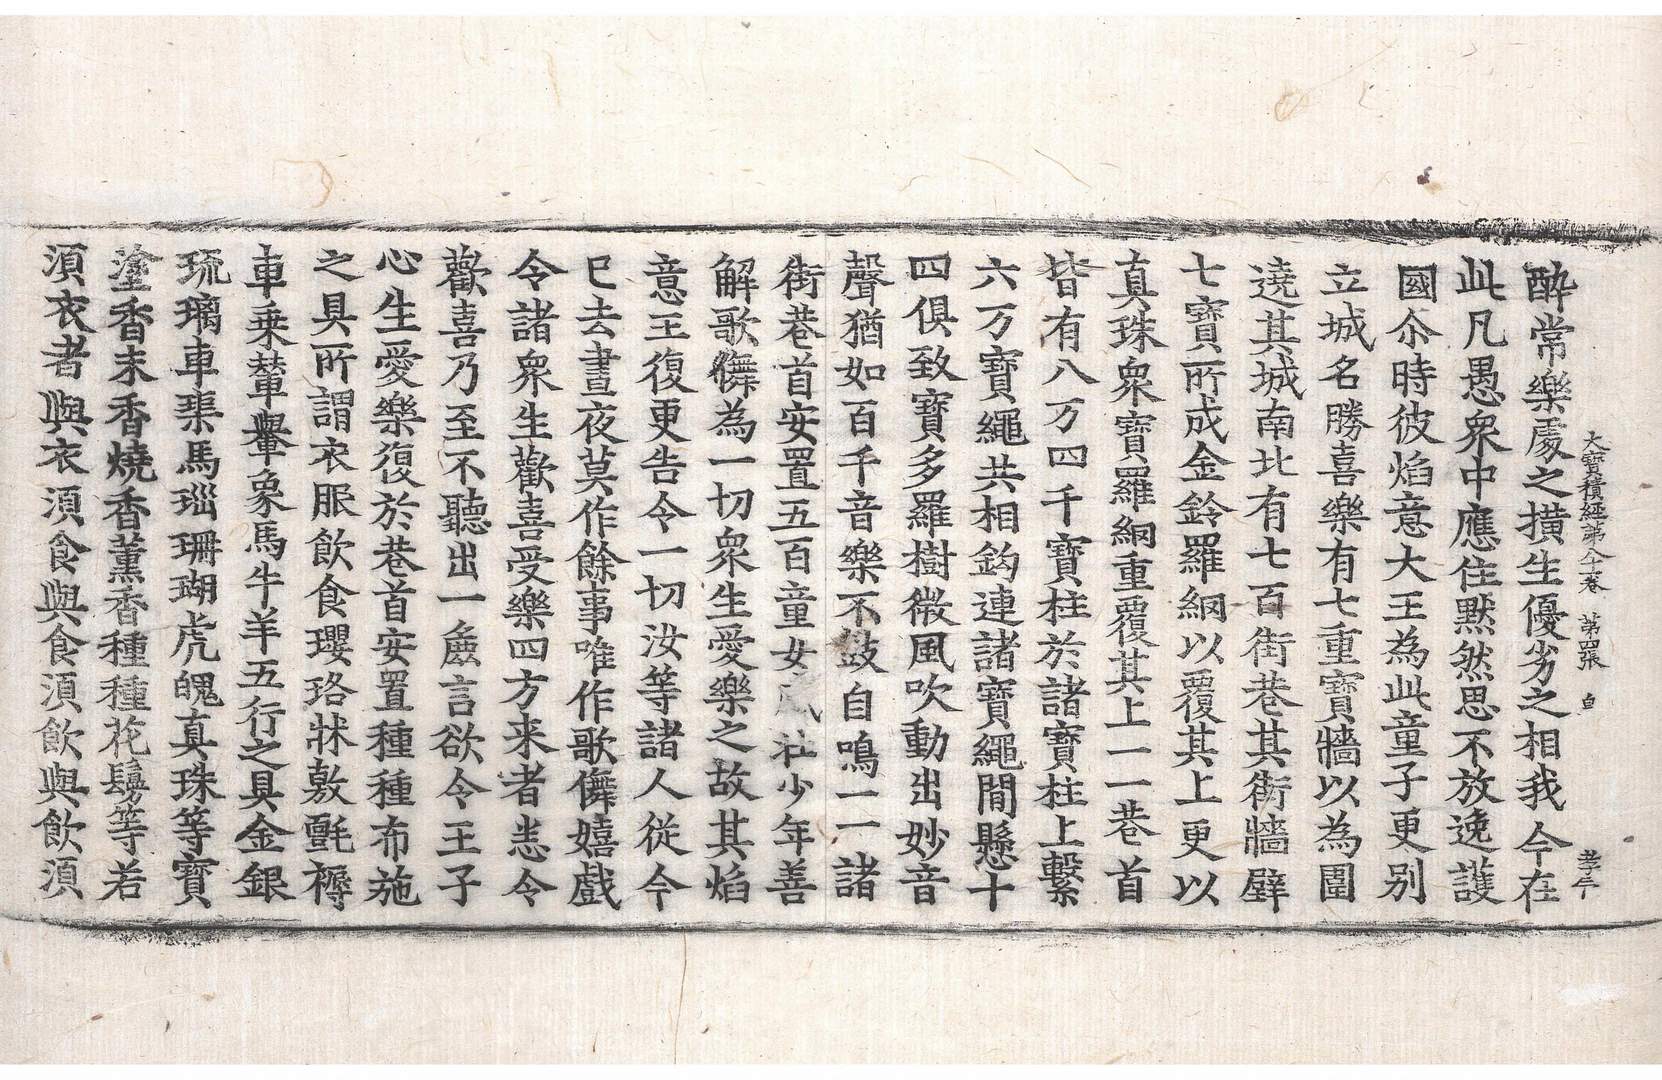 大寶積經第八十卷 第四張 自
孝年
醉常樂處之撗生優劣之相我今在
此凡愚衆中應住默然思不放逸護
國尒時彼焰意大王為此童子更別
立城名勝喜樂有七重寶牆以為圍
遶其城南北有七百街巷其街牆壁
七寶所成金鈴羅網以覆其上更以
真珠衆寶羅網重覆其上一一巷首
皆有八万四千寶柱於諸寶柱上繫
六万寶繩共相鉤連諸寶繩閒懸十
四俱致寶多羅樹微風吹動出妙音
聲猶如百千音樂不鼓自鳴一一諸
街巷首安置五百童女盛壯少年善
解歌儛為一切衆生愛樂之故其焰
意王復更告令一切汝等諸人從今
已去晝夜莫作餘事唯作歌儛嬉戲
令諸衆生歡喜受樂四方来者悉令
歡喜乃至不聽出一麁言欲令王子
心生愛樂復於巷首安置種種布施
之具所謂衣服飲食瓔珞牀敷氈褥
車乗輦轝象馬牛羊五行之具金銀
琉璃車𤦲馬瑙珊瑚虎魄真珠等寶
塗香末香燒香薰香種種花鬘等若
湏衣者與衣湏食與食湏飲與飲湏